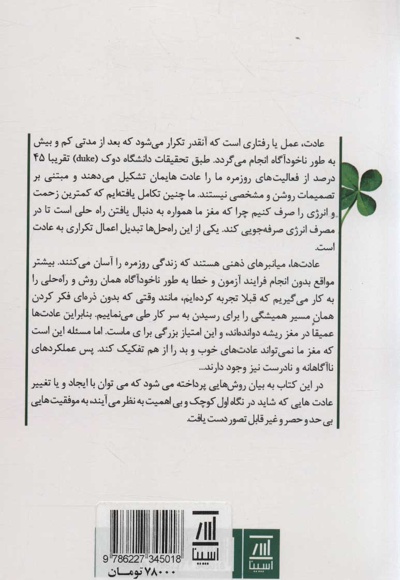 عادت، عمل یا رفتاری است که آنقدر تکرار می‌شود که بعد از مدتی کم و بیش
به طور ناخودآگاه انجام می‌گردد. طبق تحقیقات دانشگاه دوک (duke) تقریبا ۴۵
درصد از فعالیت‌های روزمره ما را عادت هایمان تشکیل می‌دهند و مبتنی بر
تصمیمات روشن و مشخصی نیستند. ما چنین تکامل یافته‌ایم که کمترین زحمت
و انرژی را صرف کنیم چرا که مغز ما همواره به دنبال یافتن راه حلی است تا در
مصرف انرژی صرفه‌جویی کند. یکی از این راه‌حل‌ها تبدیل اعمال تکراری به عادت
است.
عادت‌ها، میانبرهای ذهنی هستند که زندگی روزمره را آسان می‌کنند. بیشتر
مواقع بدون انجام فرایند آزمون و خطا به طور ناخودآگاه همان روش و راه‌حلی را
به کار می‌گیریم که قبلا تجربه کرده‌ایم، مانند وقتی که بدون ذره‌ای فکر کردن
همان مسیر همیشگی را برای رسیدن به سر کار طی می‌نماییم. بنابراین عادت‌ها
عمیقاً در مغز ریشه دوانده‌اند، و این امتیاز بزرگی برای ماست. اما مسئله این است
که مغز ما نمی‌تواند عادت‌های خوب و بد را از هم تفکیک کند. پس عملکردهای
ناآگاهانه و نادرست نیز وجود دارند...
در این کتاب به بیان روش‌هایی پرداخته می شود که می توان با ایجاد و یا تغییر
عادت هایی که شاید در نگاه اول کوچک و بی اهمیت به نظر می‌آیند، به موفقیت‌هایی
بی حد و حصر و غیر قابل تصور دست یافت.
اسپینا
اسپینا
9 786227 345018
۷۸۰۰۰ تومان